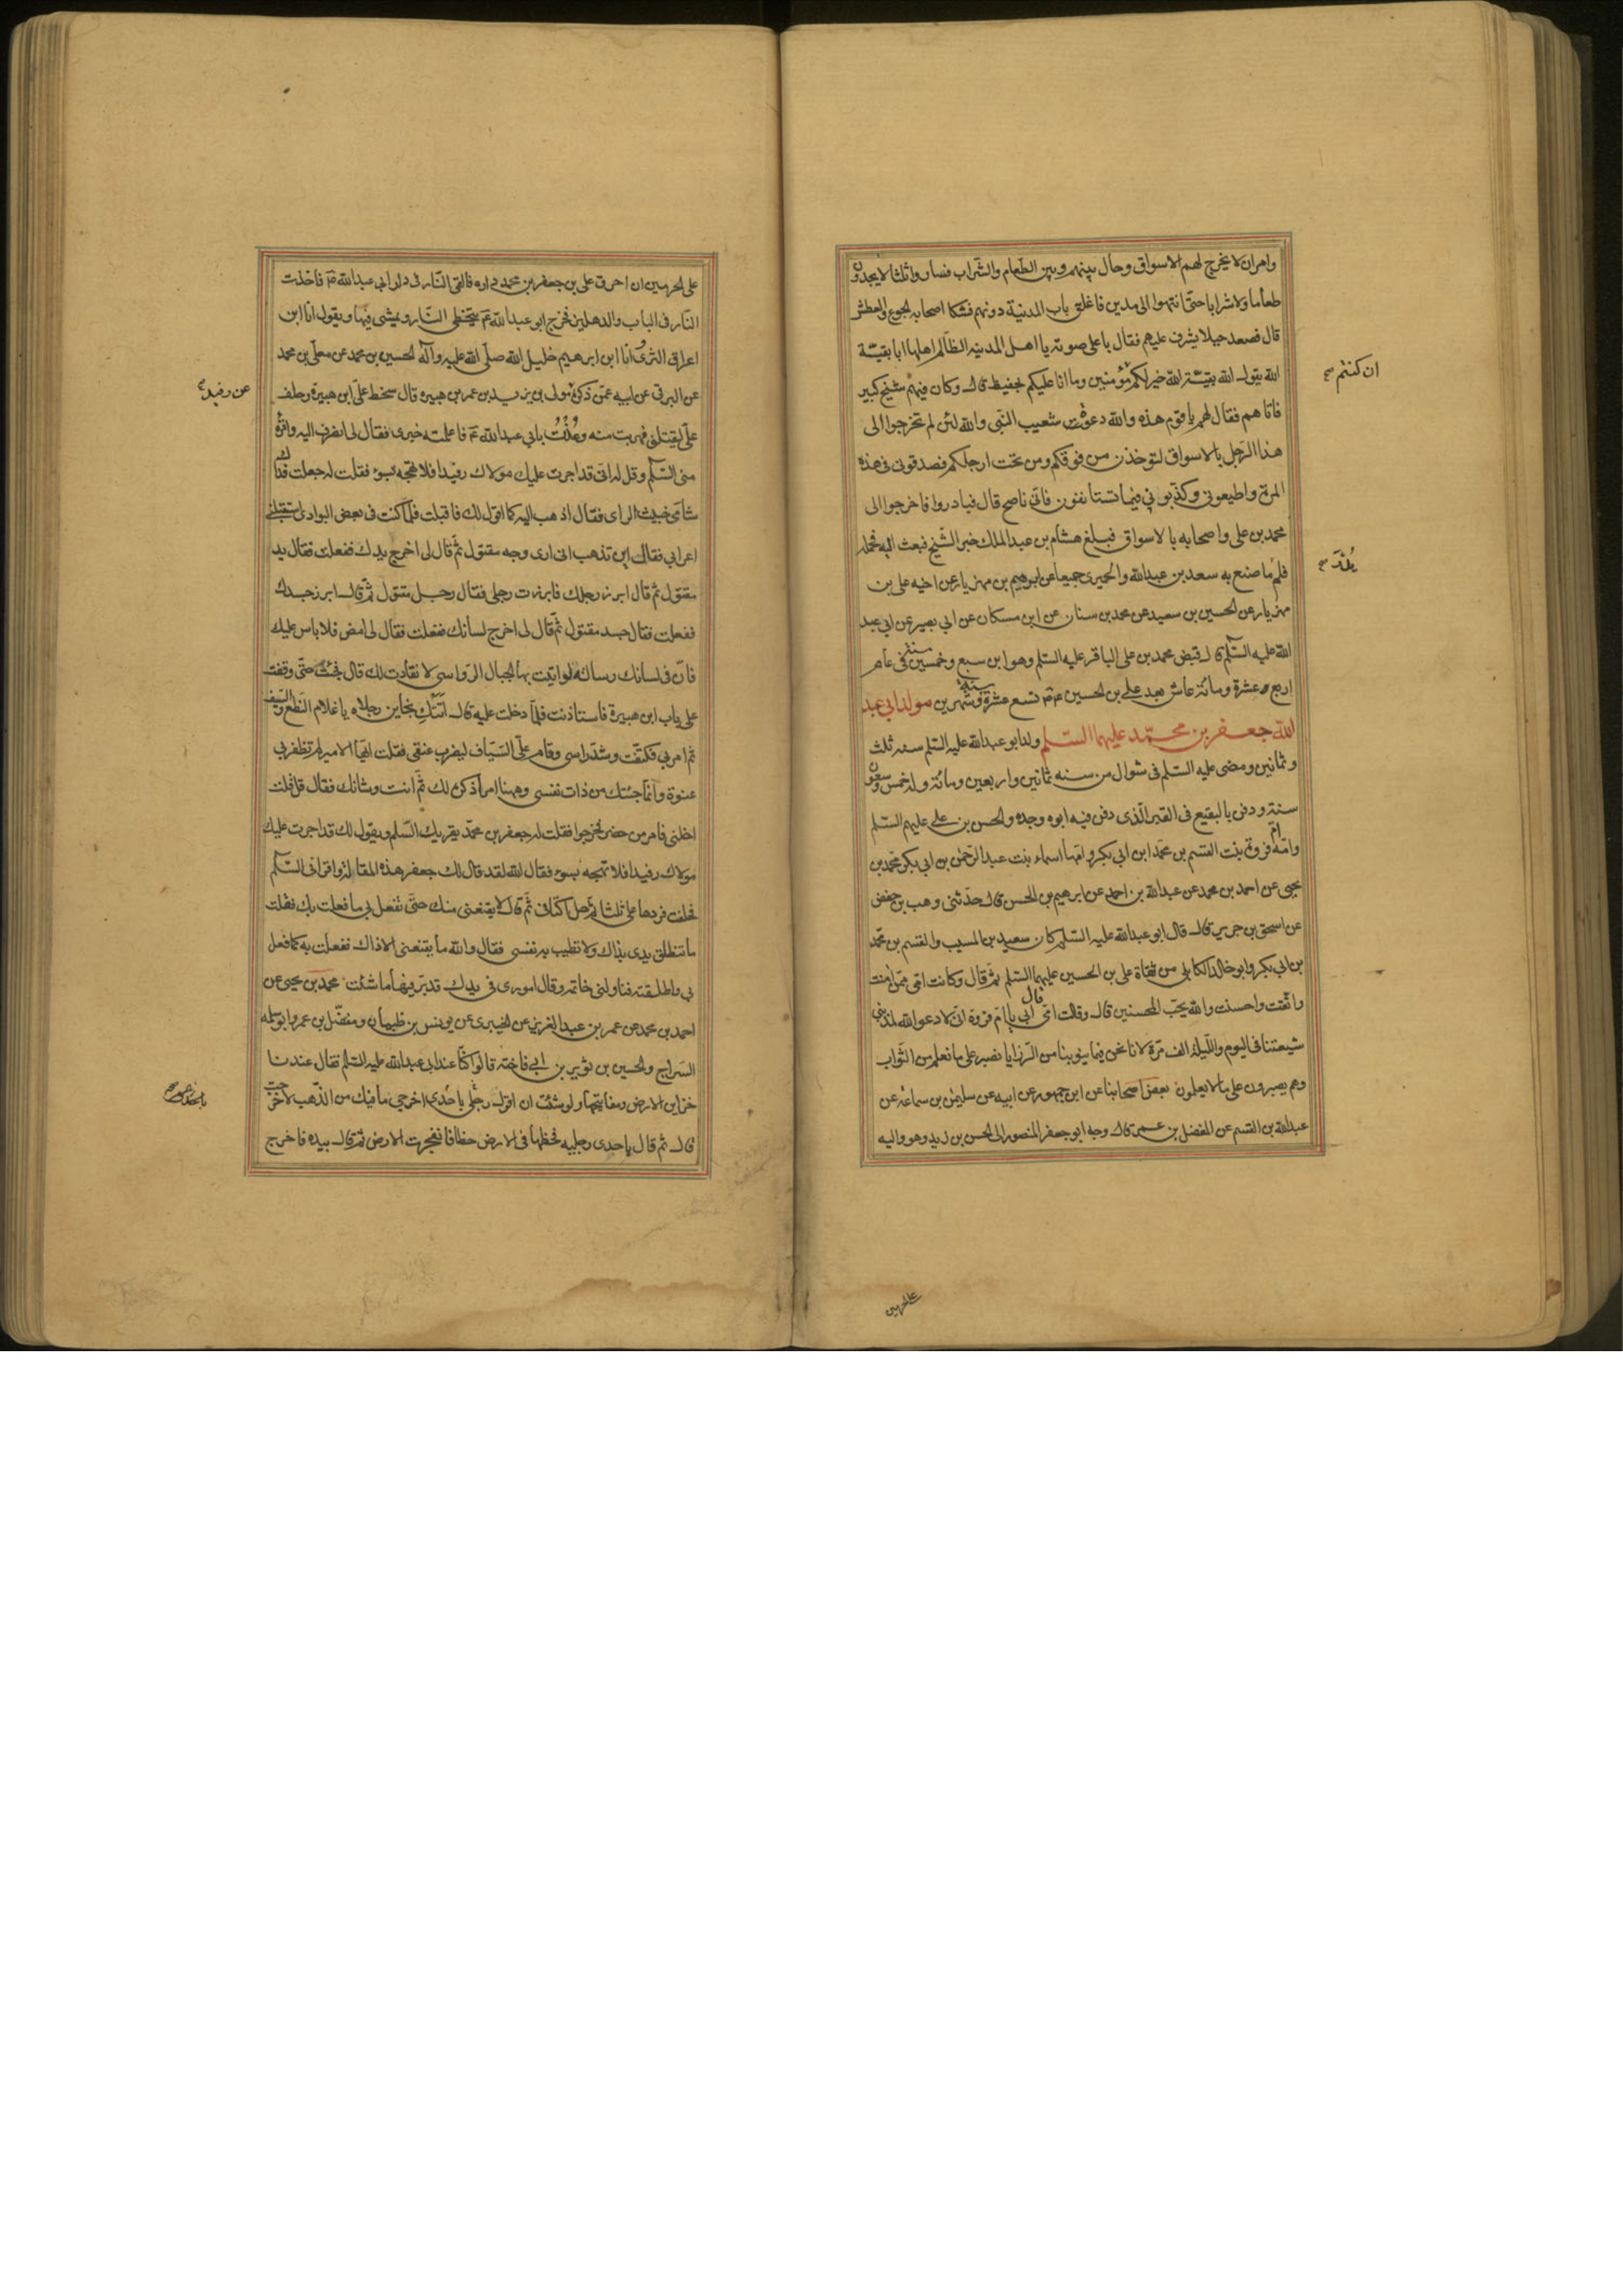 وامر ان لا يخرج لهم الاسواق وحال بينهم وبين الطعام والشراب فساروا ثلثا لا يجدون
طعاما ولا شرابا حتى انتهوا الى مدين فاغلق باب المدينة دونهم فشكا اصحابه الجوع والعطش
قال فصعد جبلا يشرف عليهم فقال باعلى صوته يا اهل المدينه الظالم اهلها انا بقيّة
الله يقول الله بقيّة الله خير لكم مؤمنين وما انا عليكم بحفيظ قال وكان فيهم شيخ كبير
ان كنتم صح
فاتاهم فقال لهم يا قوم هذه والله دعوة شعيب النبى والله لئن لم تخرجوا الى
هذا الرجل بالاسواق لتؤخذن من فوقكم ومن تحت ارجلكم فصدقونى فى هذه
المرة واطيعونى وكذبونى فيما تستانفون فانى ناصح قال فبادروا فاخرجوا الى
محمد بن على واصحابه بالاسواق فبلغ هشام بن عبد الملك خبر الشيخ فبعث اليه فحمله
فلم ما صنع به سعد بن عبدالله والحميرى جميعا عن ابرهيم بن مهزيار عن اخيه على بن
يُدْرَ صح
مهزيار عن الحسين بن سعيد عن محمد بن سنان عن ابن مسكان عن ابى بصير عن ابى عبد
الله عليه السلم قال قبض محمد بن على الباقر عليه السلم وهو ابن سبع وخمسين سنة فى عام
اربع وعشرة ومائة عاش بعد على بن الحسين ع م تسع عشرة سنة وشهرين مولد ابى عبد
الله جعفر بن محمّد عليهما السلم ولد ابو عبدالله عليه السلم سنه ثلث
وثمانين ومضى عليه السلم فى شوال من سنه ثمانين واربعين ومائة وله خمس وستون
سنة ودفن بالبقيع فى القبر الذى دفن فيه ابوه وجده والحسن بن على عليهم السلم
وامّه امّ فروة بنت القسم بن محمد ابن ابى بكر وامّها اسماء بنت عبد الرحمن بن ابى بكر محمّد بن
يحيى عن احمد بن محمد عن عبدالله بن احمد عن ابرهيم بن الحسن قال حدّثنى وهب بن حفص
عن اسحق بن جرير قال قال ابو عبدالله عليه السلم كان سعيد بن المسيب والقسم بن محمّد
بن ابى بكر وابو خالد الكابلى من ثقاة على بن الحسين عليهما السلم ثم قال وكانت امّى ممّن امنت
واتّقت واحسنت والله يحبّ المحسنين قال وقالت امّى قال ابى يا امّ فروة انى لادعو الله لمذنبى
شيعتنا فى اليوم والليلة الف مرّة لانا نحن فيما ينوبنا من الرّزايا نصبر على ما نعلم من الثّواب
وهم يصبرون على ما لا يعلمون بعض اصحابنا عن ابن جمهور عن ابيه عن سليمن بن سماعة عن
عبدالله بن القسم عن المفضل بن عمر قال وجه ابو جعفر المنصور الى الحسن بن زيد وهو واليه
على الحرمين
على الحرمين ان احرق على بن جعفر بن محمد داره فالقى النّار فى دار ابى عبدالله ع م فاخذت
النّار فى الباب والدهليز فخرج ابو عبدالله ع م يتخطى النّار ويمشى فيها ويقول انا ابن
اعراق الثرى انا ابن ابرهيم خليل الله صلّى الله عليه وآله الحسين بن محمد عن معلّى بن محمد
عن البرقى عن ابيه عمّن ذكره مولى بن يزيد بن عمر بن هبيره قال سخط علىّ ابن هبيرة وحلف
عن رفيد
علىّ ليقتلنى فهربت منه وعُذْتُ بابى عبدالله ع م فاعلمته خبرى فقال لى انصرف اليه واقرئه
منى السّلم وقل له انى قد اجرت عليك مولاك رفيدا فلا تهجه بسوء فقلت له جعلت فداك
شامى خبيث الراى فقال اذهب اليه كما اقول لك فاقبلت فلما كنت فى بعض البوادى استقبلنى
اعرابى فقال اين تذهب انى ارى وجه مقتول ثمّ قال لى اخرج يدك ففعلت فقال يد
مقتول ثم قال ابرز رجلك فابرزت رجلى فقال رجل مقتول ثمّ قال ابرز جسدك
ففعلت فقال جسد مقتول ثمّ قال لى اخرج لسانك ففعلت فقال لى امض فلا باس عليك
فانّ فى لسانك رسالة لو اتيت بها الجبال الرّواسى لانقادت لك قال فجئت حتى وقفت
على باب ابن هبيرة فاستاذنت فلمّا دخلت عليه قال اتتك بخاين رجلاه يا غلام النّطع والسّيف
ثم امر بى فكتّفت وشدّ راسى وقام علىّ السّيّاف ليضرب عنقى فقلت ايّها الامير لم تظفر بى
عنوة وانّما جئتك من ذات نفسى وههنا امر اذكره لك ثم انت وشانك فقال قل فقلت
اخلنى فامر من حضر فخرجوا فقلت له جعفر بن محمّد يقريك السّلم ويقول لك قد اجرت عليك
مولاك رفيدا فلا تهجه بسوء فقال الله لقد قال لك جعفر هذه المقالة واقرانى السّلم
فحلفت فردها علىّ ثلثا ثم حل اكتافى ثمّ قال لا يقنعنى منك حتّى تفعل بى ما فعلت بك فقلت
ما تنطلق يدى بذاك ولا تطيب به نفسى فقال والله ما يقنعنى الا ذاك ففعلت به كما فعل
بى واطلقته فناولنى خاتمه وقال امورى فى يدك فدبّر فيها ما شئت محمد بن يحيى عن
احمد بن محمد عن عمر بن عبد العزيز عن الخيبرى عن يونس بن ظبيان ومفضّل بن عمر وابو سلمه
السّراج والحسين بن ثوير بن ابى فاخته قالوا كنّا عند ابى عبدالله عليه السلم فقال عندنا
خزاين الارض ومفاتيحها ولو شئت ان اقول رجلى باحدى اخرجى ما فيك من الذّهب لاخرجت
قال ثم قال باحدى رجليه فخطّها فى الارض خطا فانفجرت الارض ثم قال بيده فاخرج